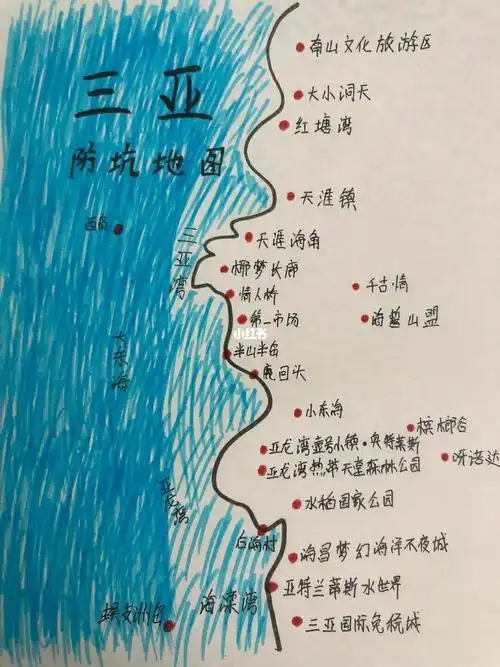 南山文化旅游区
三亚
大小洞天
红塘湾
防坑地图
天涯镇
西岛
三亚湾
天涯海角
椰梦长廊
千古情
情人桥
第一市场
海誓山盟
小红书
大东海
半山半岛
鹿回头
小东海
槟榔谷
亚龙湾壹号小镇·奥特莱斯
呀诺达
亚龙湾热带天堂森林公园
亚龙湾
水稻国家公园
后海村
海昌梦幻海洋不夜城
亚特兰蒂斯水世界
海棠湾
蜈支洲岛
三亚国际免税城